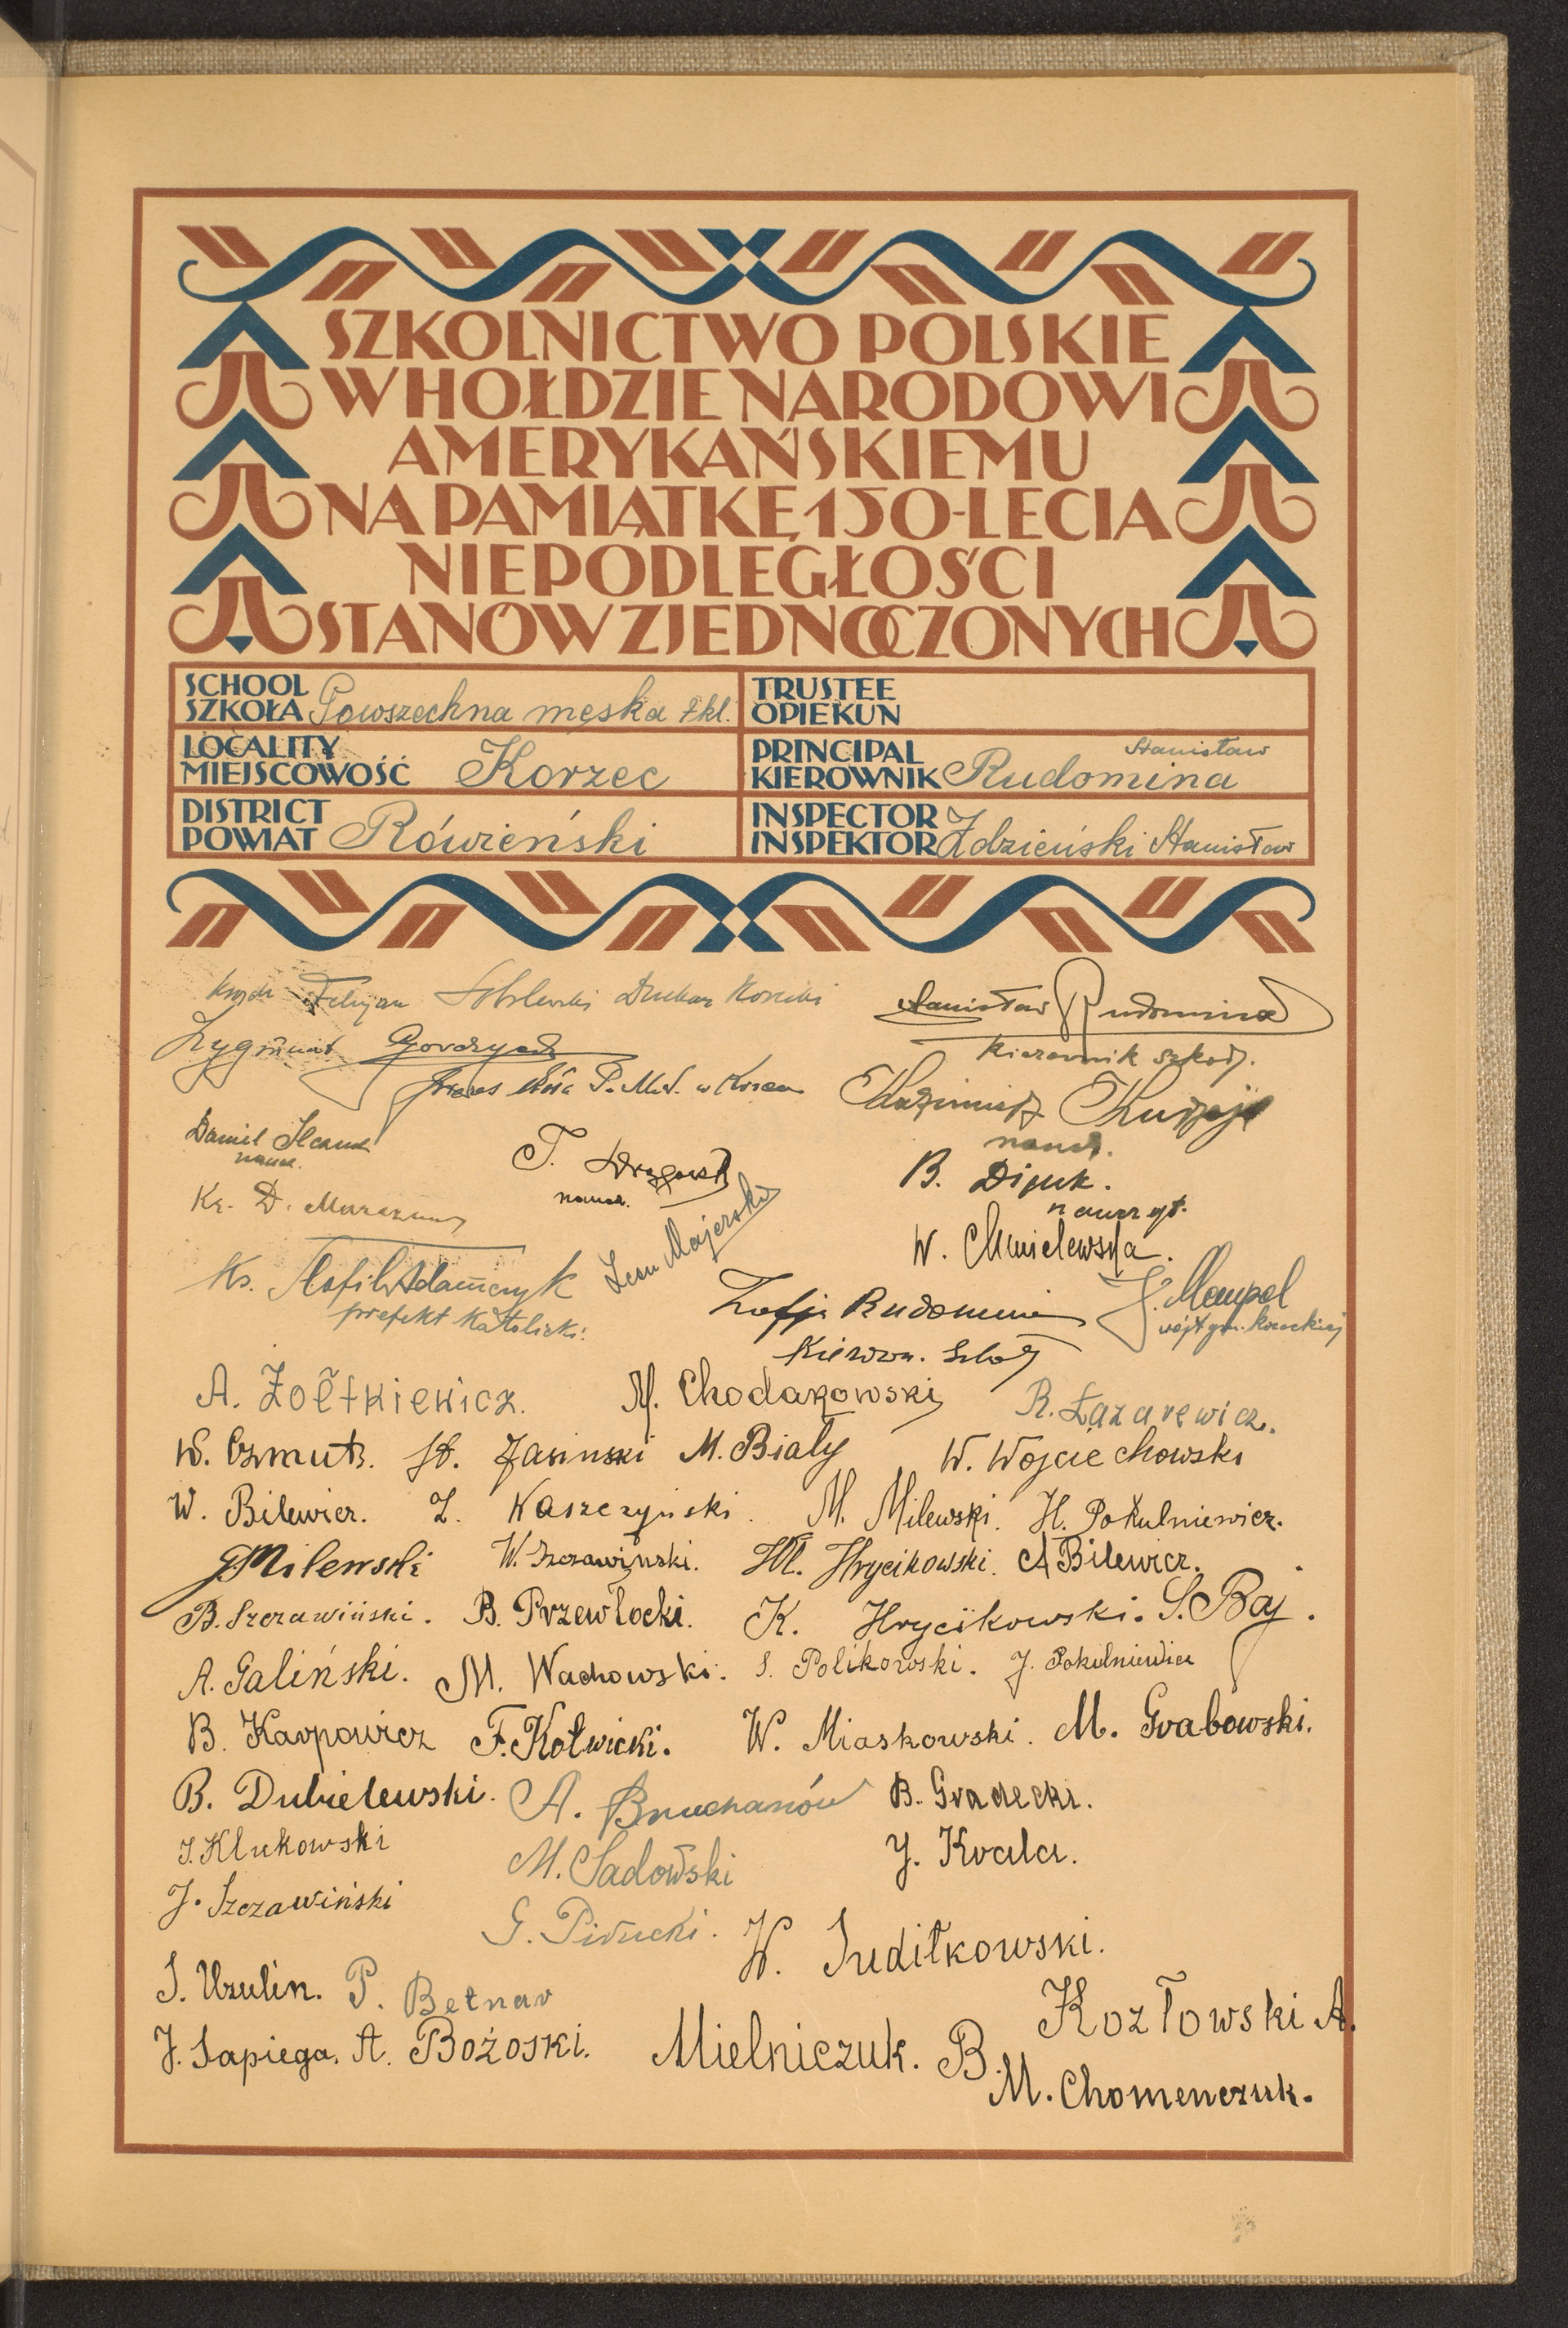 SZKOLNICTWO POLSKIE
W HOŁDZIE NARODOWI
AMERYKAŃSKIEMU
NA PAMIĄTKĘ 150-LECIA
NIEPODLEGŁOŚCI
STANÓW ZJEDNOCZONYCH
SCHOOL
SZKOŁA Powszechna męska 7kl.
TRUSTEE
OPIEKUN
LOCALITY
MIEJSCOWOŚĆ Korzec
PRINCIPAL Stanisław
KIEROWNIK Rudomina
DISTRICT
POWIAT Rówieński
INSPECTOR
INSPEKTOR Żdzieński Stanisław
Stanisław Rudomina
Zygmunt
Kierownik szkoły.
Kazimierz
Daniel
naucz.
naucz.
T.
naucz.
B. Dijuk.
nauczyt.
Ks. D.
W. Chmielewska.
Leon Majerski
Ks. Teofil Adamczyk
prefekt katolicki.
Zofja Rudomina
Kierown. Szkoły
J. Mempel
A. Żołtkiewicz. M. Chodakowski R. Łazarewicz.
W. Czmut. St. Jasinski M. Biały W. Wojciechowski
W. Bilewicz. Z. Kaszczyński. M. Milewski. H. Pokulniewicz.
G Milewski W. Szczawiński. Wł. Hrycikowski. A Bilewicz.
B. Szczawiński. B. Przewłocki. K. Hrycikowski. S. Baj.
A. Galiński. M. Wachowski. S. Polikowski. J. Pokulniewicz
B. Karpowicz F. Kotwicki. W. Miaskowski. M. Grabowski.
B. Dubielewski. A. Bruchanów B. Gradecki.
J. Klukowski M. Sadowski J. Krala.
J. Szczawiński G. Piłucki. W. Juditkowski.
J. Uzulin. P. Betnar Kozłowski A.
J. Sapiega. A. Bożoski. Mielniczuk. B.
M. Chomenczuk.